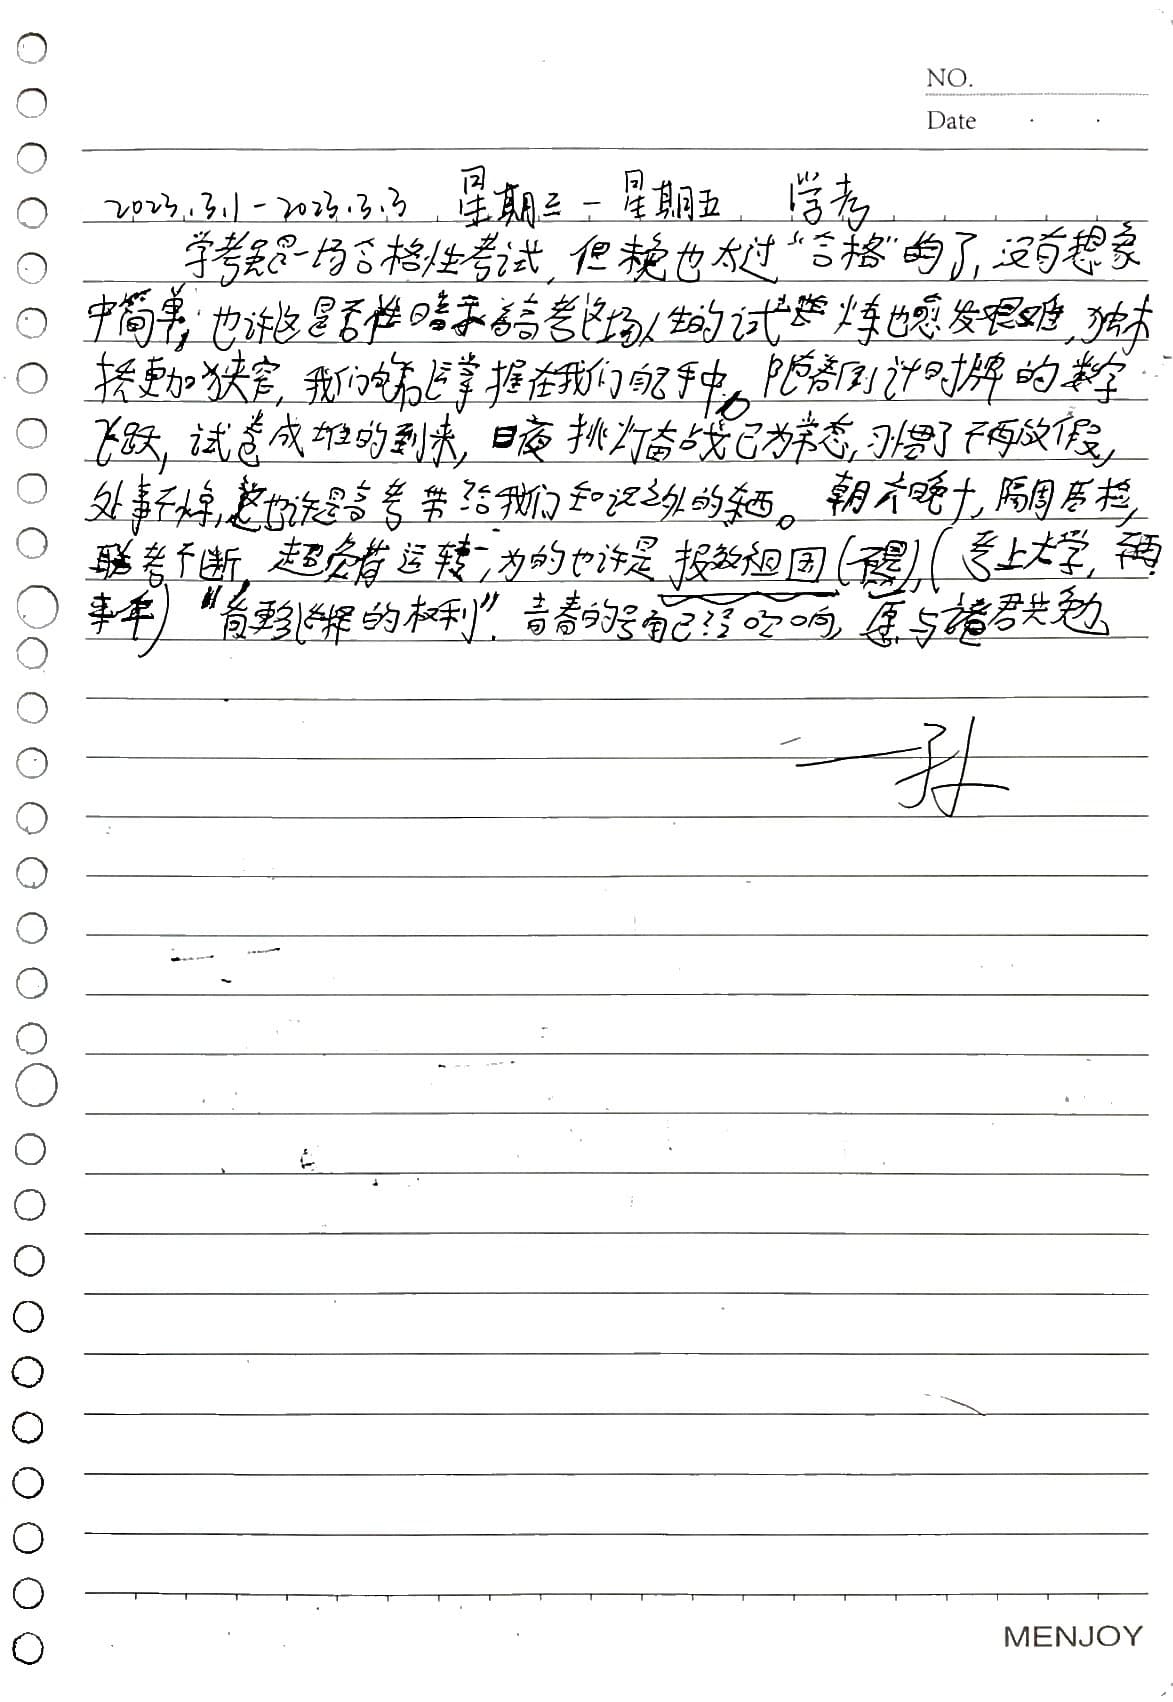 NO.
Date
2023.3.1-2023.3.3 星期三-星期五 学考
学考虽是一场合格性考试,但难也太过“合格”的了,没有想象
中简单,也许这是否惟暗示着高考这场人生的试炼也愈发艰难,独木
桥更加狭窄,我们的命运掌握在我们自己手中。随着倒计时牌的数字
飞跃,试卷成堆的到来,日夜挑灯奋战已为常态,习惯了不再放假,
处事不惊,这也许是高考带给我们知识之外的东西。朝六晚十,隔周质检,
联考不断,超负荷运转,为的也许是报效祖国(不是),(考上大学,不再
来年)“有更多选择的权利”.青春的号角已经吹响,愿与诸君共勉
MENJOY